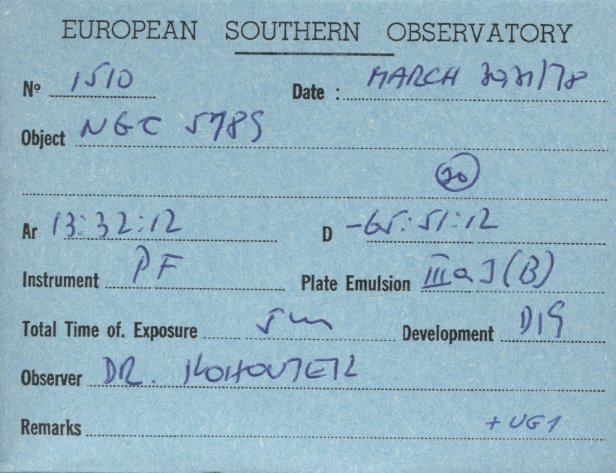 EUROPEAN SOUTHERN OBSERVATORY
Nº 1510 Date : MARCH 30,31/78
Object NGC 5189
20
Ar 13:32:12 D -65:51:12
Instrument PF Plate Emulsion IIIaJ (B)
Total Time of. Exposure 5m Development D19
Observer DR. KOHOUTEK
Remarks + UG1